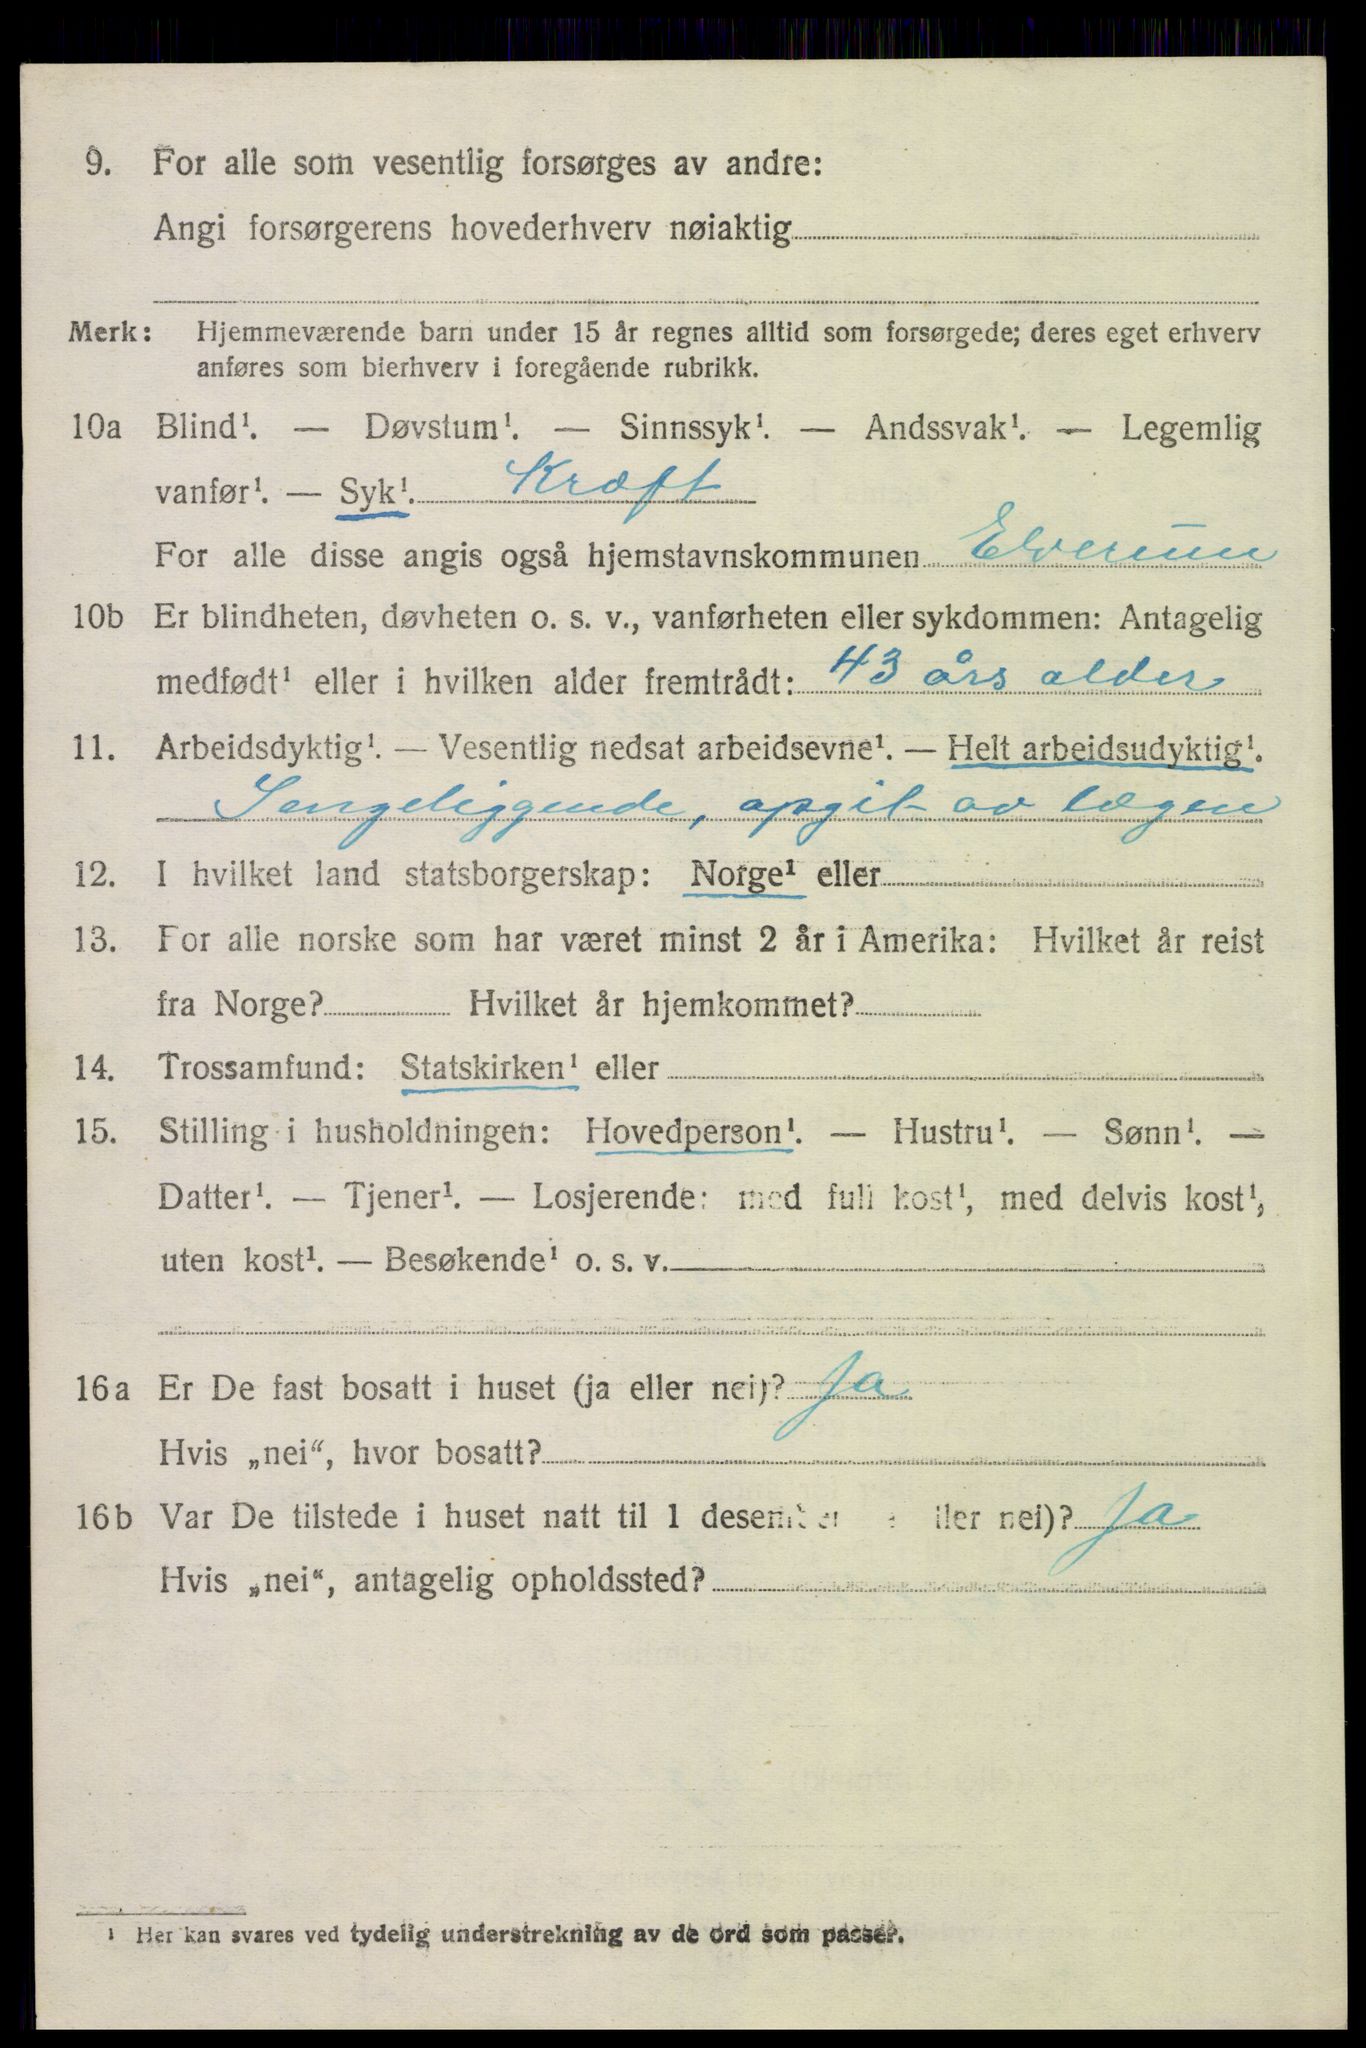 9. For alle som vesentlig forsørges av andre:
Angi forsørgerens hovederhverv nøiaktig
Merk: Hjemmeværende barn under 15 år regnes alltid som forsørgede; deres eget erhverv
anføres som bierhverv i foregående rubrikk.
10a Blind¹. — Døvstum¹. — Sinnssyk¹. — Andssvak¹. — Legemlig
vanfør¹. — Syk¹. Kræft
For alle disse angis også hjemstavnskommunen Elverum
10b Er blindheten, døvheten o. s. v., vanførheten eller sykdommen: Antagelig
medfødt¹ eller i hvilken alder fremtrådt: 43 års alder
11. Arbeidsdyktig¹. — Vesentlig nedsat arbeidsevne¹. — Helt arbeidsudyktig¹.
Sengeliggende, opgit av lægen
12. I hvilket land statsborgerskap: Norge¹ eller
13. For alle norske som har været minst 2 år i Amerika: Hvilket år reist
fra Norge? Hvilket år hjemkommet?
14. Trossamfund: Statskirken¹ eller
15. Stilling i husholdningen: Hovedperson¹. — Hustru¹. — Sønn¹. —
Datter¹. — Tjener¹. — Losjerende: med full kost¹, med delvis kost¹,
uten kost¹. — Besøkende¹ o. s. v.
16a Er De fast bosatt i huset (ja eller nei)? Ja
Hvis „nei“, hvor bosatt?
16b Var De tilstede i huset natt til 1 desember ller nei)? Ja
Hvis „nei“, antagelig opholdssted?
¹ Her kan svares ved tydelig understrekning av de ord som passer.